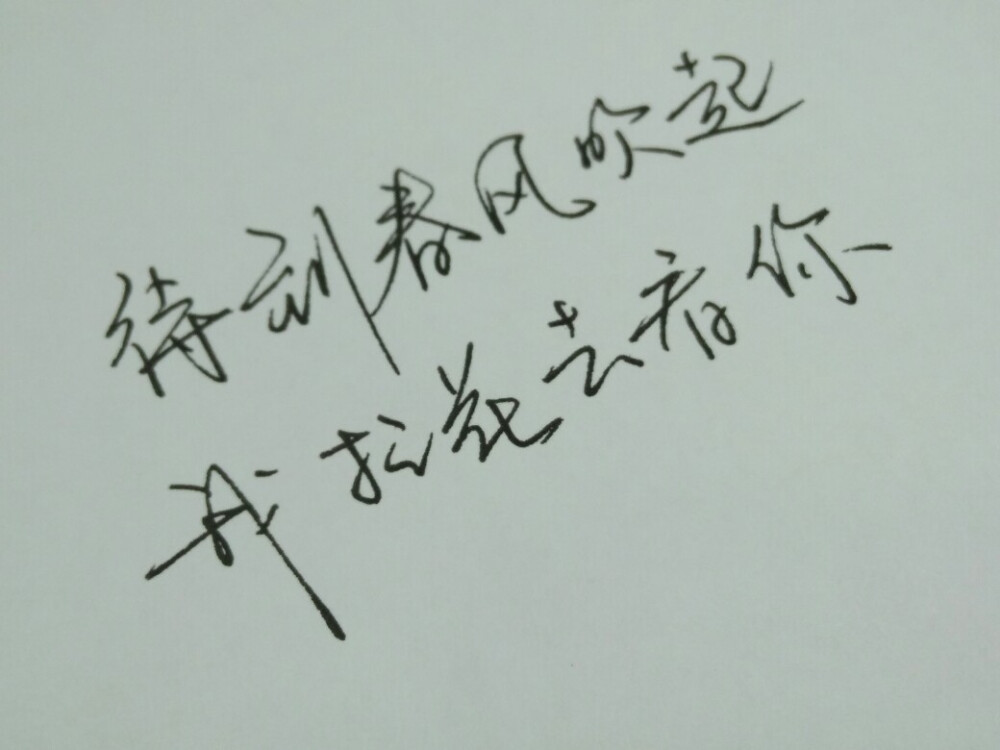 待到春风吹起
我扛花去看你